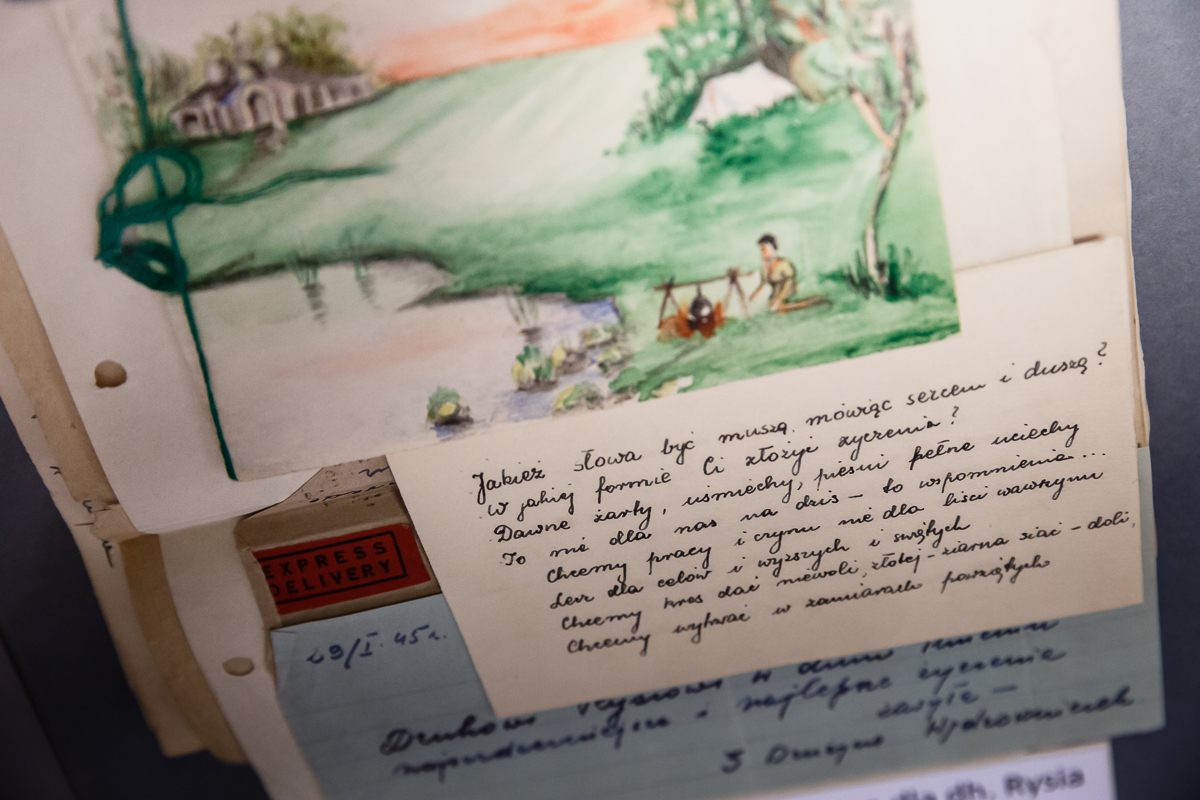 Jakież słowa być muszą, mówiąc sercem i duszą?
W jakiej formie Ci złożyć życzenia?
Dawne żarty, uśmiechy, pieśni pełne uciechy
To nie dla nas na dziś – to wspomnienia...
Chcemy pracy i czynu nie dla liści wawrzynu
Lecz dla celów i wyższych i świętych
Chcemy kres dać niewoli, złotej – ziarna siać – doli,
Chcemy wytrwać w zamiarach powziętych
EXPRESS
DELIVERY
29/I. 45 r.
Druhowi Rysiowi w dniu Imienin
najserdeczniejsze i najlepsze życzenia
3 Drużyna
dla dh. Rysia